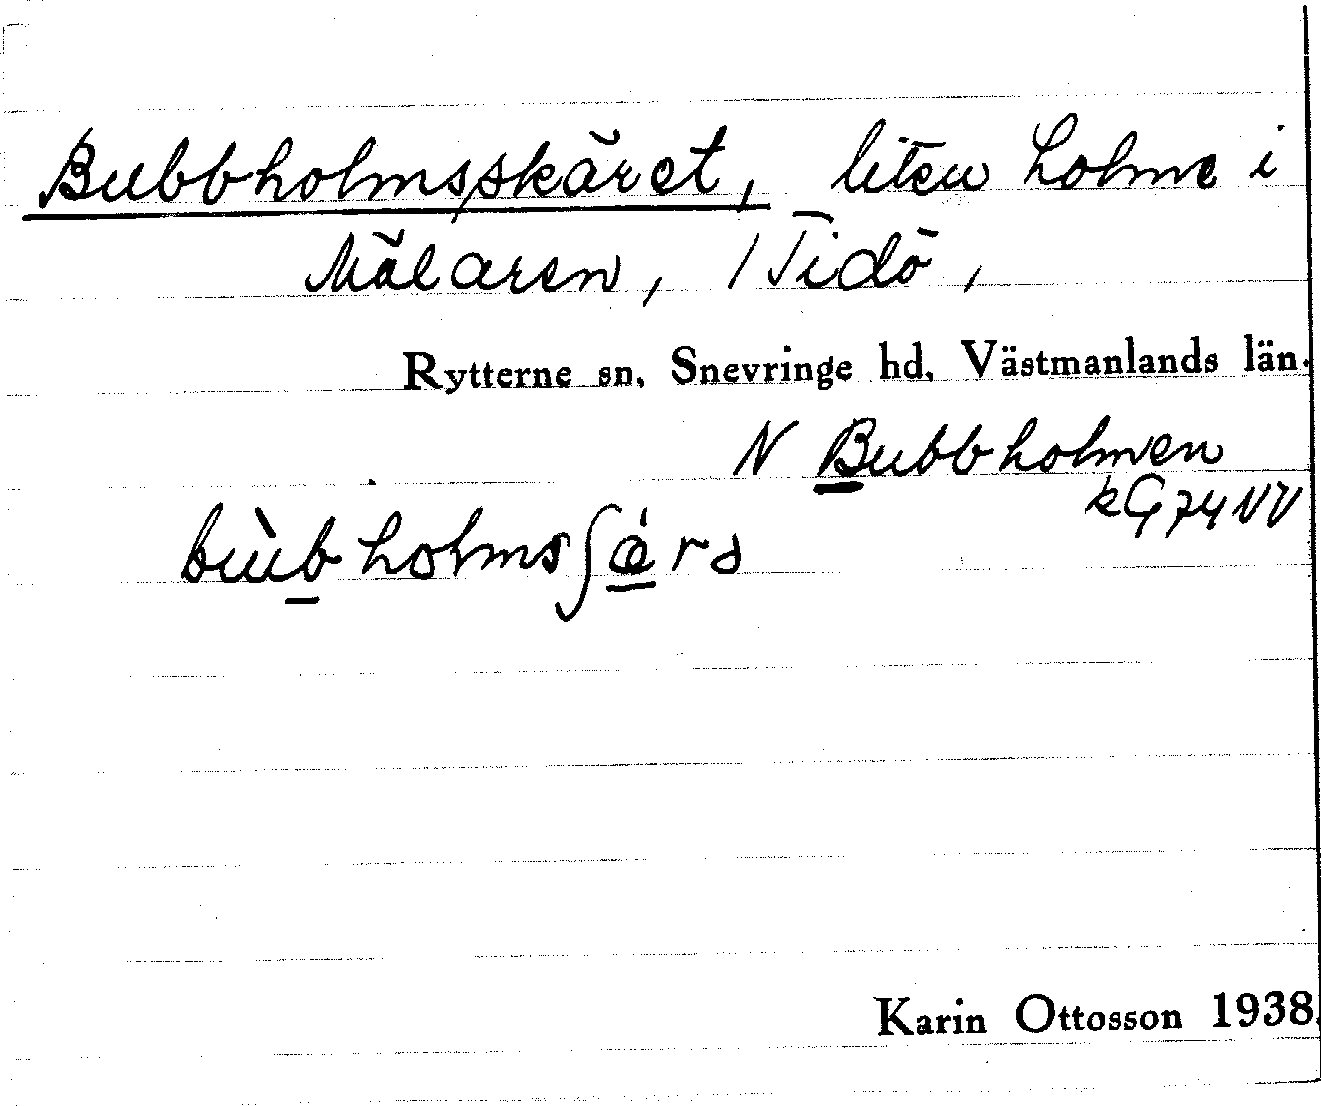 Bubbholmsskäret, liten holme i
Mälaren, / Tidö,
Rytterne sn, Snevringe hd, Västmanlands län.
N Bubbholmen
kG 74 NV
bùbholmsʃǽrə
Karin Ottosson 1938.